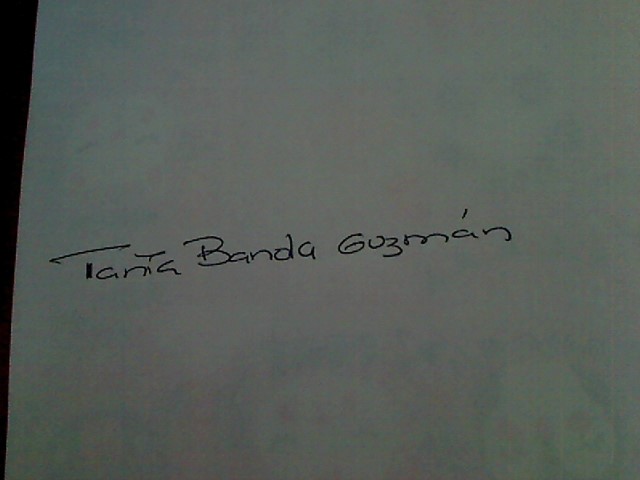 Tania Banda Guzmán